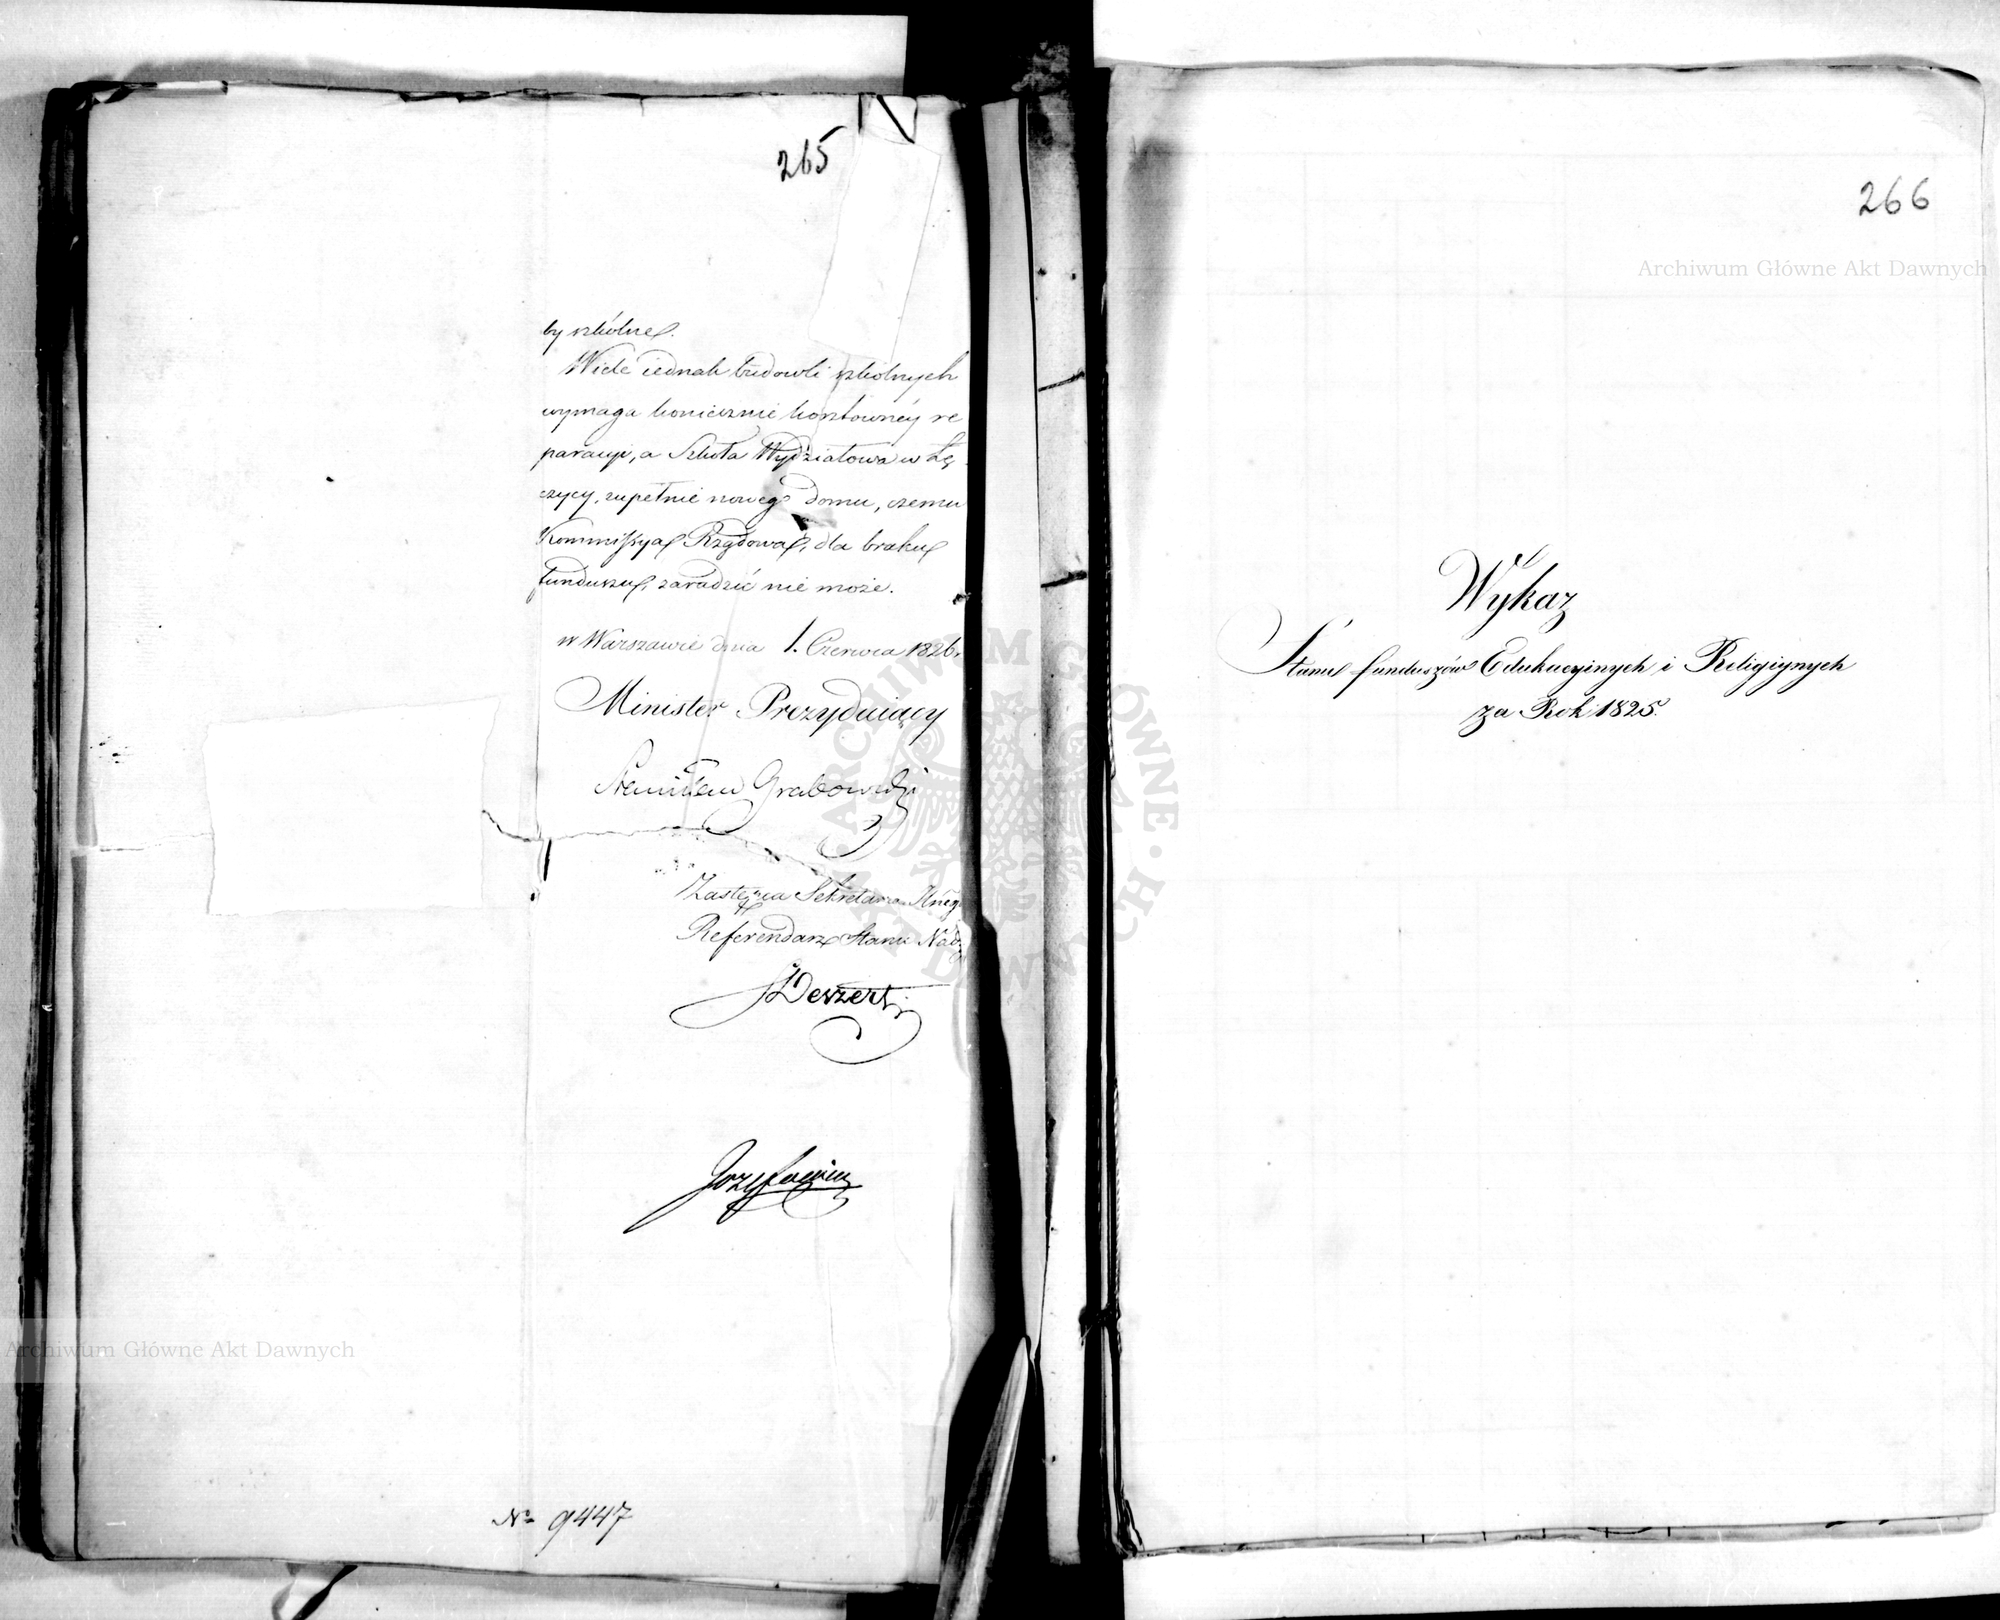 265
by szkólne.
Wiele iednak budowli szkolnych
wymaga koniecznie kosztownéy re
paracyi, a Szkoła Wydziałowa w Łę
czycy, zupełnie nowego domu, czemu
Kommissya Rządowa, dla braku
funduszu, zaradzić nie może.
w Warszawie dnia 1. Czerwca 1826.
Minister Prezyduiący
Stanisław Grabowski
Zastępca Sekretarza
Referendarz Stanu Nadz.
Deszert
Jozyfowicz
No 9447
266
Archiwum Główne Akt Dawnych
Wykaz
Stanu funduszów Edukacyinych i Religiynych
za Rok 1825.
ARCHIWUM GŁÓWNE AKT DAWNYCH
Archiwum Główne Akt Dawnych